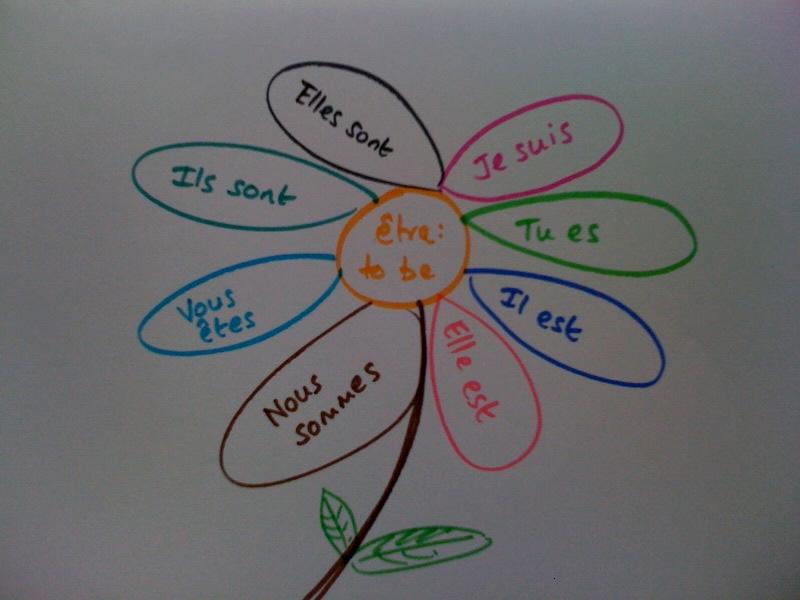 être:
to be
Je suis
Tu es
Il est
Elle est
Nous
sommes
Vous
êtes
Ils sont
Elles sont